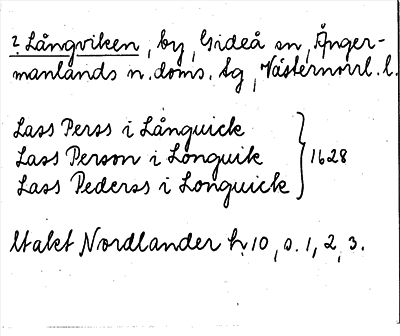 2. Långviken, by, Gideå sn, Ånger-
manlands n. doms. tg, Västernorrl. l.
Lass Perss i Långuick
Lass Person i Longuik
Lass Pederss i Longuick
1628
Utakt Nordlander h. 10, s. 1, 2, 3.